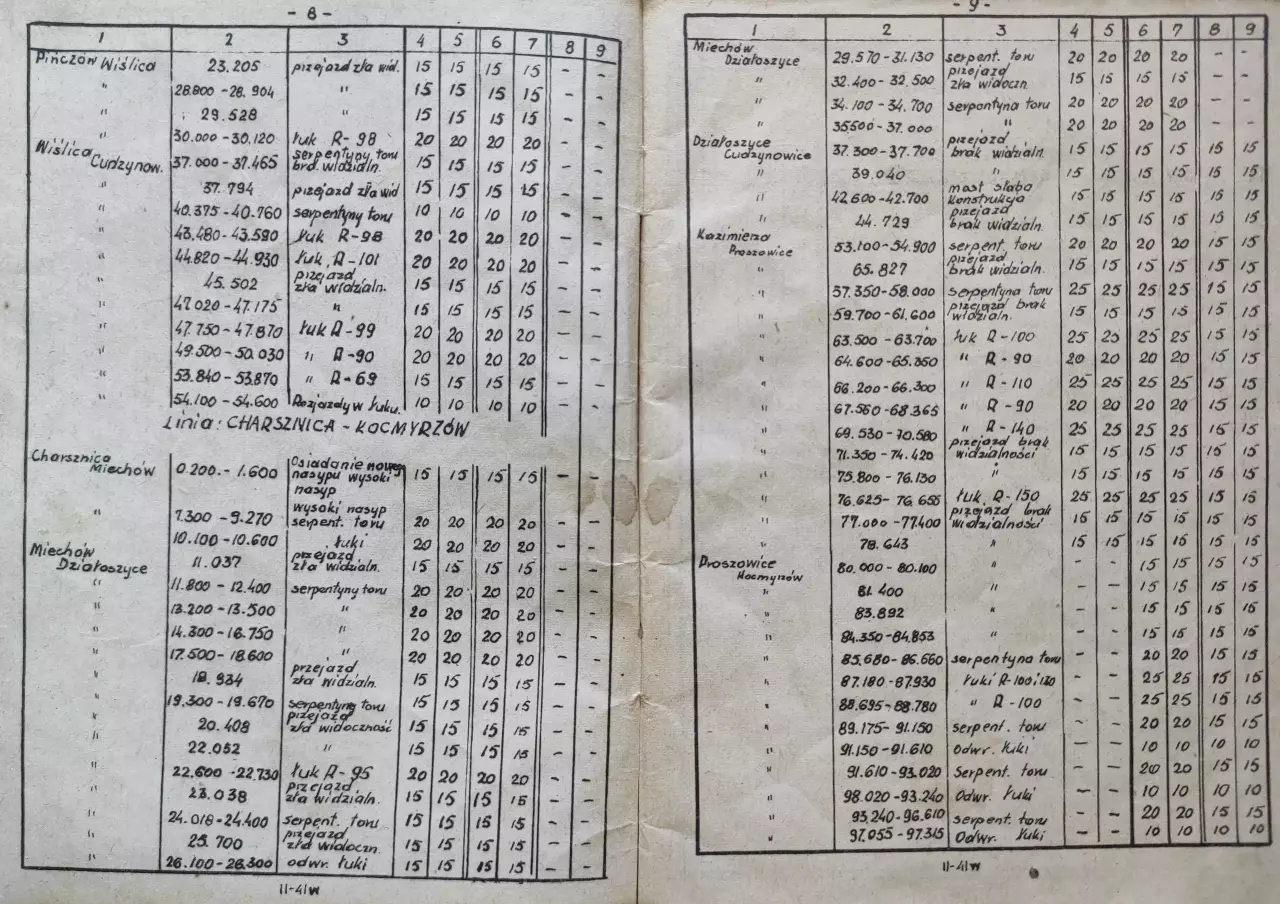 - 8 -
1 2 3 4 5 6 7 8 9
Pińczów Wiślica 23.205 przejazd zła wid. 15 15 15 15 - -
" 28.800-28.904 " 15 15 15 15 - -
" 29.528 " 15 15 15 15 - -
" 30.000-30.120 łuk R-98 20 20 20 20 - -
Wiślica Cudzynow. 37.000-37.465 serpentyny toru
brd. widzialn. 15 15 15 15 - -
" 37.794 przejazd zła wid 15 15 15 15 - -
" 40.375-40.760 serpentyny toru 10 10 10 10 - -
" 43.480-43.590 łuk R-98 20 20 20 20 - -
" 44.820-44.930 łuk R-101 20 20 20 20 - -
" 45.502 przejazd
zła widzialn. 15 15 15 15 - -
" 47.020-47.175 " 15 15 15 15 - -
" 47.750-47.870 łuk R-99 20 20 20 20 - -
" 49.500-50.030 " R-90 20 20 20 20 - -
" 53.840-53.870 " R-69 15 15 15 15 - -
" 54.100-54.600 Rozjazdy w łuku. 10 10 10 10 - -
Linia: CHARSZNICA - KOCMYRZÓW
Charsznica
Miechów 0.200.-1.600 Osiadanie nowego
nasypu wysoki
nasyp 15 15 15 15 - -
" 7.300-9.270 wysoki nasyp
serpent. toru 20 20 20 20 - -
" 10.100-10.600 łuki 20 20 20 20 - -
Miechów
Działoszyce 11.037 przejazd
zła widzialn. 15 15 15 15 - -
" 11.800-12.400 serpentyny toru 20 20 20 20 - -
" 13.200-13.500 " 20 20 20 20 - -
" 14.300-16.750 " 20 20 20 20 - -
" 17.500-18.600 " 20 20 20 20 - -
" 18.934 przejazd
zła widzialn. 15 15 15 15 - -
" 19.300-19.670 serpentyny toru 15 15 15 15 - -
" 20.408 przejazd
zła widoczność 15 15 15 15 - -
" 22.052 " 15 15 15 15 - -
" 22.600-22.730 łuk R-95 20 20 20 20 - -
" 23.038 przejazd
zła widzialn. 15 15 15 15 - -
" 24.018-24.400 serpent. toru 15 15 15 15 - -
" 25.700 przejazd
zła widoczn. 15 15 15 15 - -
" 26.100-26.300 odwr. łuki 15 15 15 15 - -
II-41w
- 9 -
1 2 3 4 5 6 7 8 9
Miechów
Działoszyce 29.570-31.130 serpent. toru 20 20 20 20 - -
" 32.400-32.500 przejazd
zła widoczn 15 15 15 15 - -
" 34.100-34.700 serpentyna toru 20 20 20 20 - -
" 35500-37.000 " 20 20 20 20 - -
Działoszyce
Cudzynowice 37.300-37.700 przejazd
brak widzialn 15 15 15 15 15 15
" 39.040 " 15 15 15 15 15 15
" 42.600-42.700 most słaba
konstrukcja 15 15 15 15 15 15
" 44.729 przejazd
brak widzialn. 15 15 15 15 15 15
Kazimierza
Proszowice 53.100-54.900 serpent. toru 20 20 20 20 15 15
" 65.827 przejazd
brak widzialn. 15 15 15 15 15 15
" 57.350-58.000 serpentyna toru 25 25 25 25 15 15
" 59.700-61.600 przejazd brak
widzialn. 15 15 15 15 15 15
" 63.500-63.700 łuk R-100 25 25 25 25 15 15
" 64.600-65.350 " R-90 20 20 20 20 15 15
" 66.200-66.300 " R-110 25 25 25 25 15 15
" 67.560-68.365 " R-90 20 20 20 20 15 15
" 69.530-70.580 " R-140 25 25 25 25 15 15
" 71.350-74.420 przejazd brak
widzialności 15 15 15 15 15 15
" 75.800-76.130 " 15 15 15 15 15 15
" 76.625-76.655 łuk R-150 25 25 25 25 15 15
" 77.000-77.400 przejazd brak
widzialności 15 15 15 15 15 15
" 78.643 " 15 15 15 15 15 15
Proszowice
Kocmyrzów 80.000-80.100 " - - 15 15 15 15
" 81.400 - - 15 15 15 15
" 83.892 " - - 15 15 15 15
" 84.350-84.853 " - - 15 15 15 15
" 85.680-86.660 serpentyna toru - - 20 20 15 15
" 87.180-87.930 łuki R-100 i 130 - - 25 25 15 15
" 88.695-88.780 " R-100 - - 25 25 15 15
" 89.175-91.150 serpent. toru - - 20 20 15 15
" 91.150-91.610 Odwr. łuki - - 10 10 10 10
" 91.610-93.020 Serpent. toru - - 20 20 15 15
" 98.020-93.240 Odwr. łuki - - 10 10 10 10
" 93.240-96.610 serpent. toru - - 20 20 15 15
" 97.055-97.315 Odwr. łuki - - 10 10 10 10
II-41w